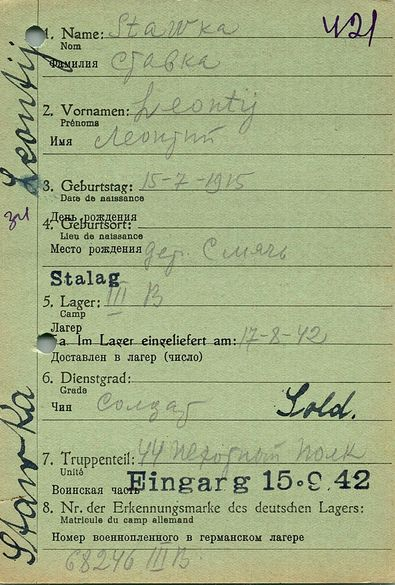 1. Name: Stawka
Nom
Фамилия Ставка
421
Leontij
2. Vornamen: Leontij
Prénoms
Имя Леонтий
3. Geburtstag: 15-7-1915
Date de naissance
День рождения
4. Geburtsort:
Lieu de naissance
Место рождения дер. Смячь
Stalag
5. Lager: III B
Camp
Лагерь
5a. Im Lager eingeliefert am: 17-8-42
Доставлен в лагерь (число)
6. Dienstgrad:
Grade
Чин солдат
Sold.
Stawka
7. Truppenteil: 44 пехотный полк
Unité
Воинская часть
Eingarg 15.9.42
8. Nr. der Erkennungsmarke des deutschen Lagers:
Matricule du camp allemand
Номер военнопленного в германском лагере
68246 III B.